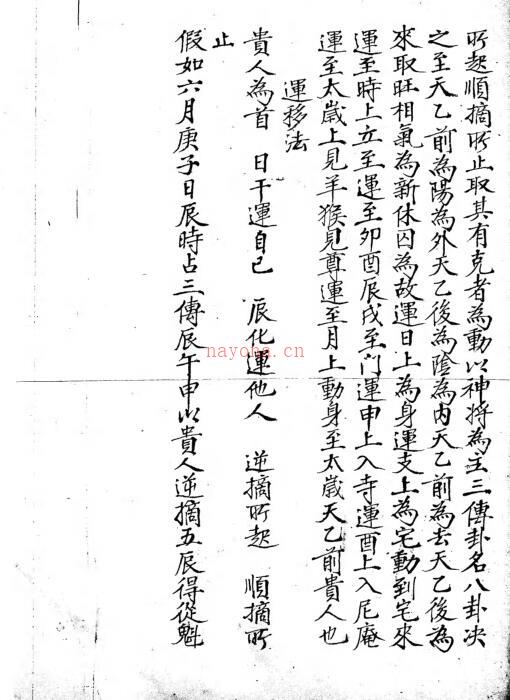 所起順摘所止取其有克者為動以神將為主三傳卦名八卦决
之至天乙前為陽為外天乙後為陰為内天乙前為去天乙後為
來取旺相氣為新休囚為故運日上為身運支上為宅動到宅來
運至時上立至運至夘酉辰戌至门運申上入寺運酉上入尼庵
運至太歲上見羊猴見尊運至月上動身至太歲天乙前貴人也
運移法
貴人為首 日干運自己 辰化運他人 逆摘所起 順摘所
止
假如六月庚子日辰時占三傳辰午申以貴人逆摘五辰得從魁
nayona.cn